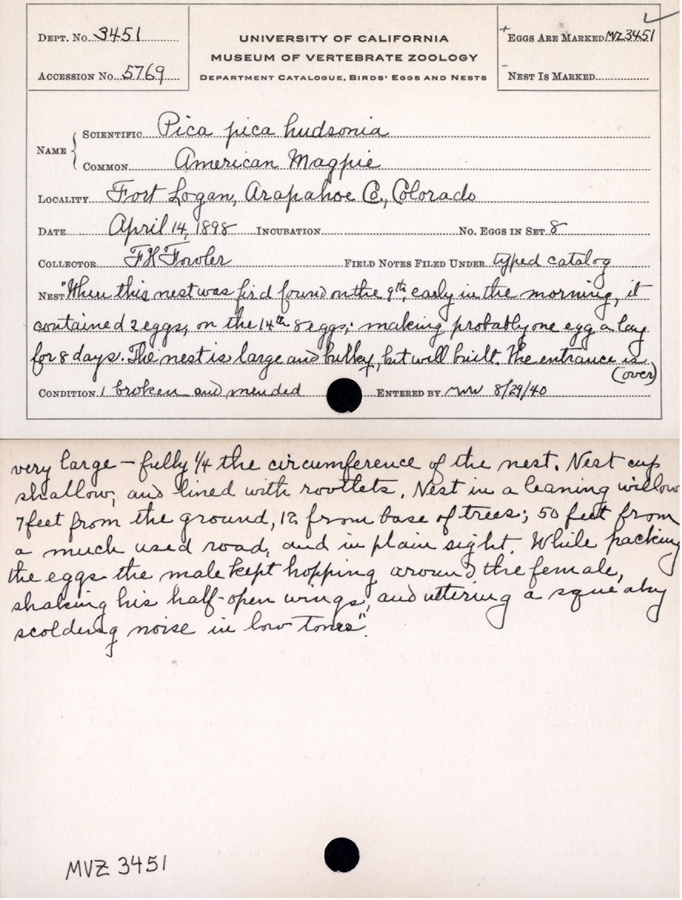 Dept. No. 3451
Accession No. 5769
UNIVERSITY OF CALIFORNIA
MUSEUM OF VERTEBRATE ZOOLOGY
Department Catalogue, Birds' Eggs and Nests
+ Eggs Are Marked MVZ 3451
- Nest Is Marked
Name { Scientific Pica pica hudsonia
Common American Magpie
Locality Fort Logan, Arapahoe Co., Colorado
Date April 14, 1898 Incubation No. Eggs in Set 8
Collector FH Fowler Field Notes Filed Under typed catalog
Nest "When this nest was first found on the 9th, early in the morning, it
contained 2 eggs, on the 14th 8 eggs; making probably one egg a day
for 8 days. The nest is large and bulky, but well built. The entrance is
(over)
Condition 1 broken and mended Entered by MW 8/29/40
very large – fully 1/4 the circumference of the nest. Nest cup
shallow, and lined with rootlets. Nest in a leaning willow
7 feet from the ground, 12 from base of trees; 50 feet from
a much used road, and in plain sight. While packing
the eggs the male kept hopping around the female,
shaking his half-open wings, and uttering a squeaky
scolding noise in low tones".
MVZ 3451